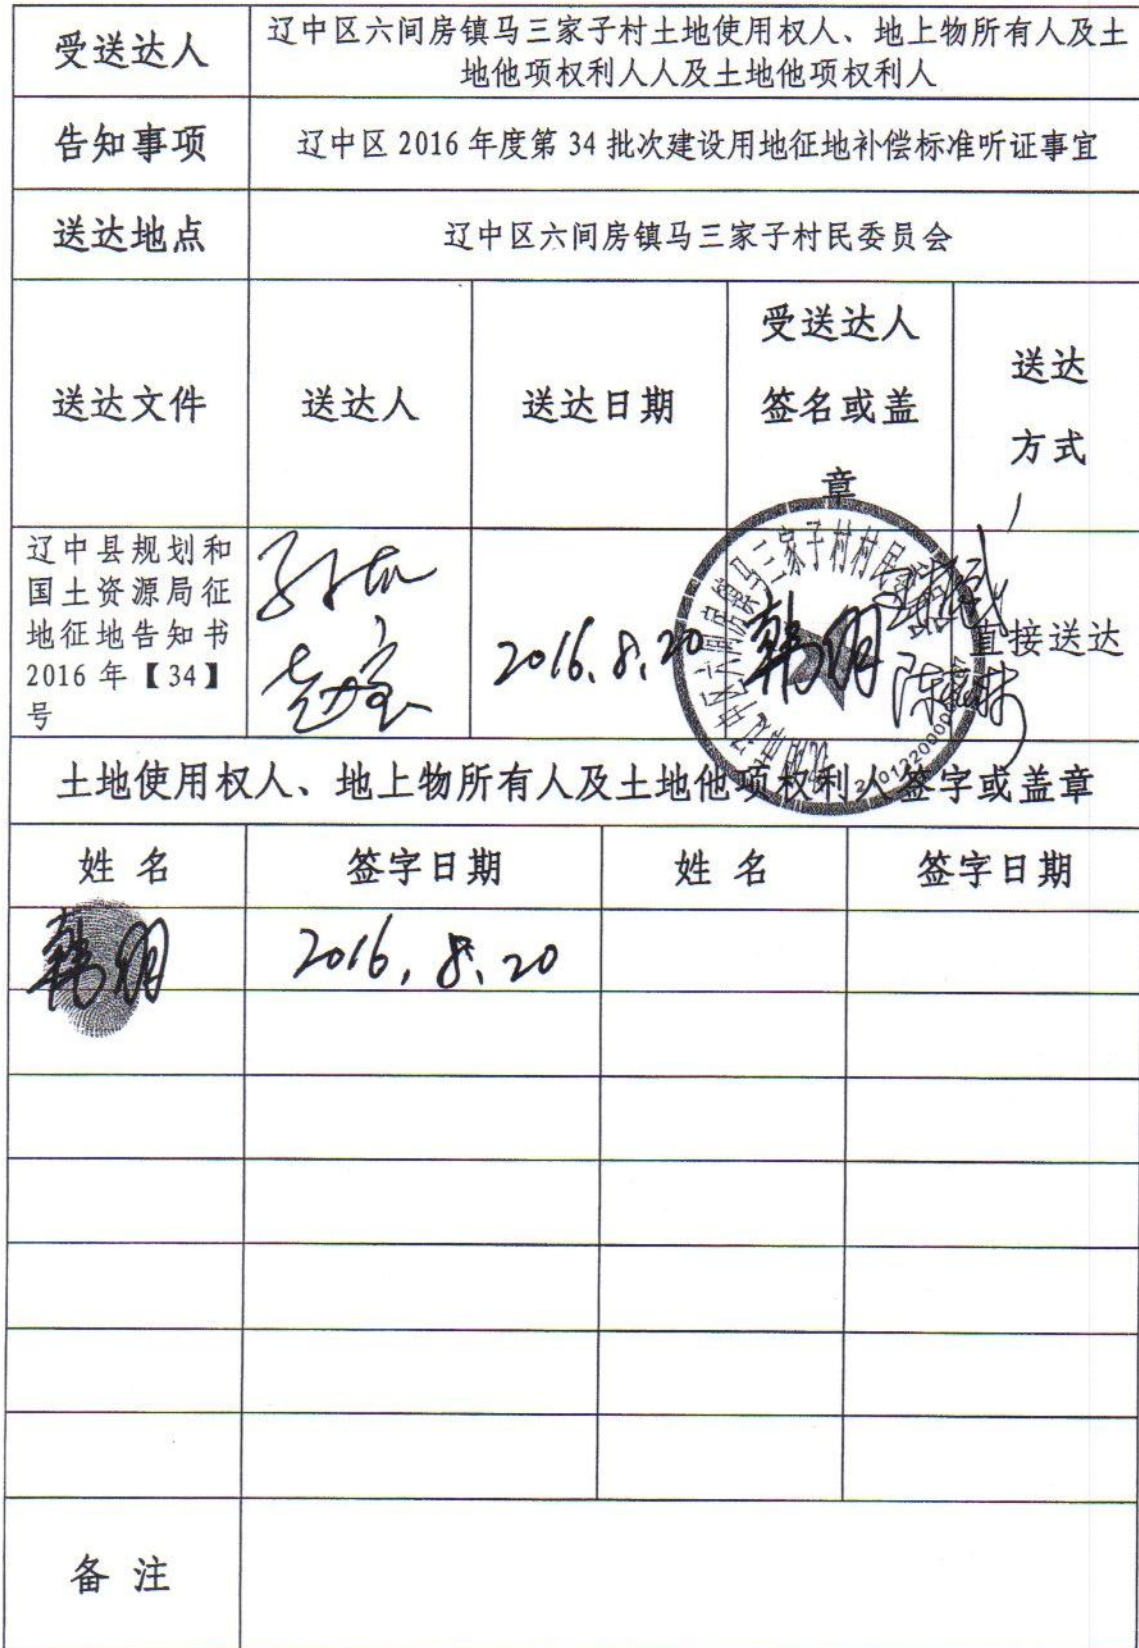 受送达人
辽中区六间房镇马三家子村土地使用权人、地上物所有人及土
地他项权利人人及土地他项权利人
告知事项
辽中区 2016 年度第 34 批次建设用地征地补偿标准听证事宜
送达地点
辽中区六间房镇马三家子村民委员会
送达文件
送达人
送达日期
受送达人
签名或盖
章
送达
方式
辽中县规划和
国土资源局征
地征地告知书
2016 年【34】
号
2016.8.20
韩明
直接送达
土地使用权人、地上物所有人及土地他项权利人签字或盖章
姓 名
签字日期
姓 名
签字日期
韩明
2016.8.20
备 注